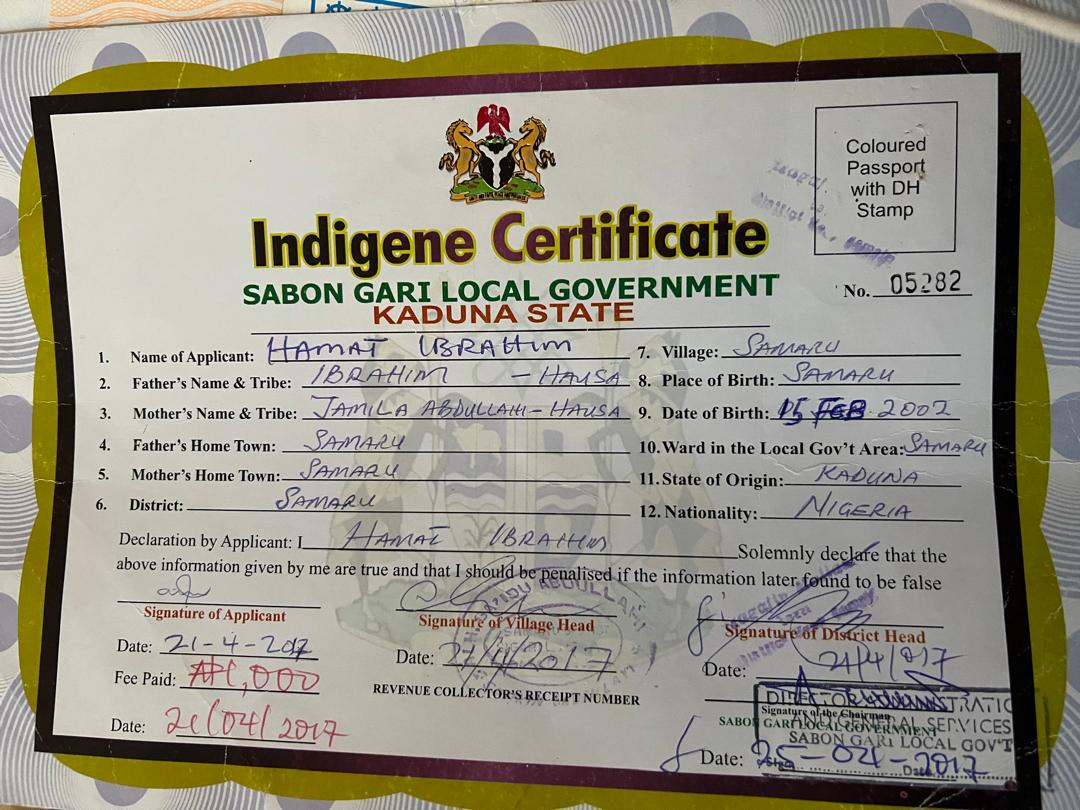 Coloured
Passport
with DH
Stamp
Indigene Certificate
SABON GARI LOCAL GOVERNMENT
KADUNA STATE
No. 05282
1. Name of Applicant: HAMAT IBRAHIM
2. Father's Name & Tribe: IBRAHIM - HAUSA
3. Mother's Name & Tribe: JAMILA ABDULLAHI - HAUSA
4. Father's Home Town: SAMARU
5. Mother's Home Town: SAMARU
6. District: SAMARU
7. Village: SAMARU
8. Place of Birth: SAMARU
9. Date of Birth: 15 FEB 2002
10. Ward in the Local Gov't Area: SAMARU
11. State of Origin: KADUNA
12. Nationality: NIGERIA
Declaration by Applicant: I HAMAT IBRAHIM Solemnly declare that the
above information given by me are true and that I should be penalised if the information later found to be false
Signature of Applicant
Date: 21-4-2017
Fee Paid: ₦1,000
Date: 21/04/2017
Signature of Village Head
Date: 21/4/2017
REVENUE COLLECTOR'S RECEIPT NUMBER
Signature of District Head
Date: 21/4/017
Signature of the Chairman
SABON GARI LOCAL GOVERNMENT
AND GENERAL SERVICES
SABON GARI LOCAL GOV'T
Date: 25-04-2017